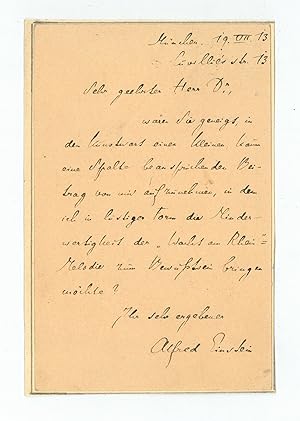 München. 19. VII 13
Cuvilliés str. 13
Sehr geehrter Herr Dr.,
wären Sie geneigt, in
den Kunstwart einen kleinen kaum
eine Spalte beanspruchenden Bei-
trag von mir aufzunehmen, in dem
ich in lustiger Form die Minder-
wertigkeit der „Wacht am Rhein"-
Melodie zum Bewußtsein bringen
möchte?
Ihr sehr ergebener
Alfred Einstein